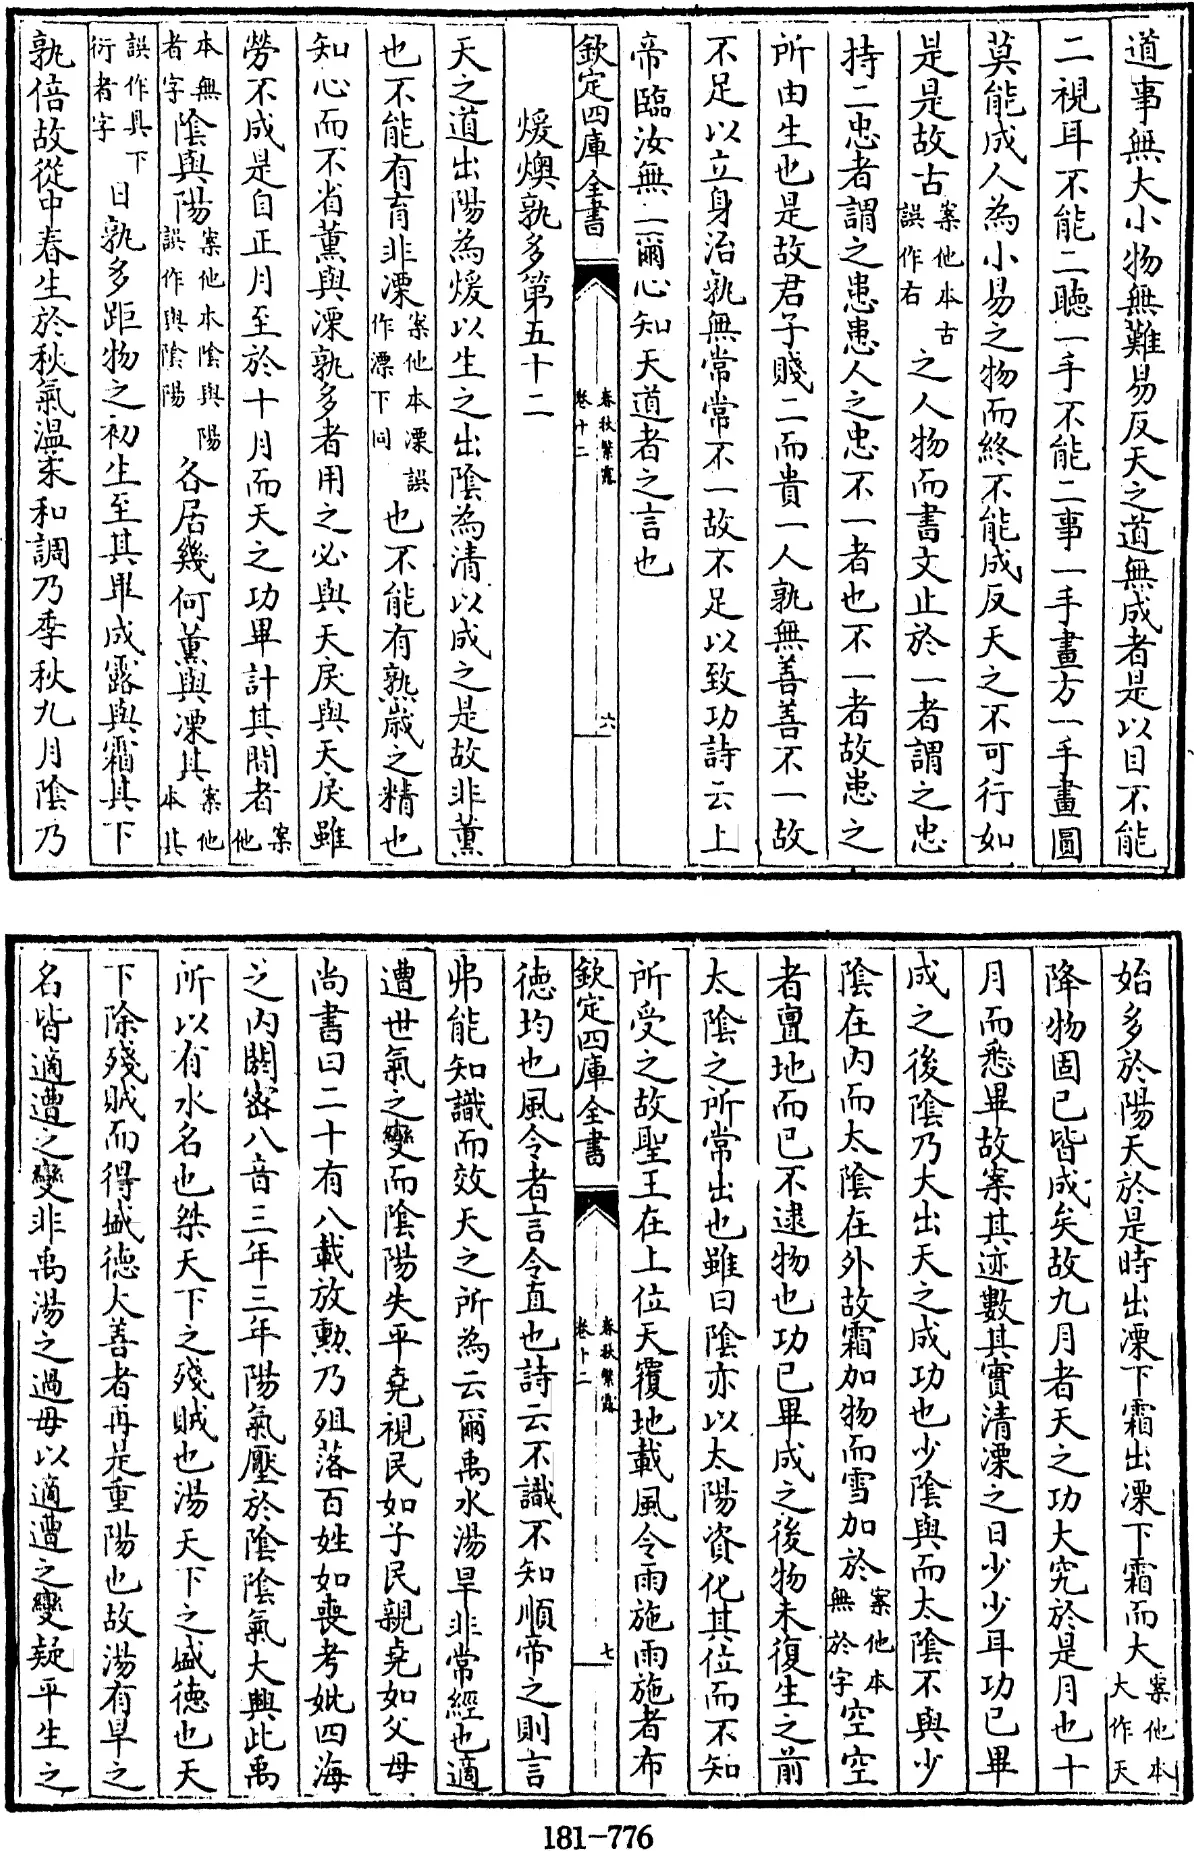 道事無大小物無難易反天之道無成者是以目不能
二視耳不能二聽一手不能二事一手畫方一手畫圓
莫能成人為小易之物而終不能成反天之不可行如
是是故古案他本古誤作右之人物而書文止於一者謂之忠
持二忠者謂之患患人之忠不一者也不一者故患之
所由生也是故君子賤二而貴一人孰無善善不一故
不足以立身治孰無常常不一故不足以致功詩云上
帝臨汝無二爾心知天道者之言也
欽定四庫全書
春秋繁露
卷十二
六
煖燠孰多第五十二
天之道出陽為煖以生之出陰為清以成之是故非薰
也不能有育非溧案他本溧誤作漂下同也不能有熟歲之精也
知心而不省薰與溧孰多者用之必與天戾與天戾雖
勞不成是自正月至於十月而天之功畢計其間者案他
本無者字陰與陽案他本陰與陽誤作與陰陽各居幾何薰與溧其案他本其
誤作具下衍者字日孰多距物之初生至其畢成露與霜其下
孰倍故從中春生於秋氣溫柔和調乃季秋九月陰乃
始多於陽天於是時出溧下霜出溧下霜而大案他本大作天
降物固已皆成矣故九月者天之功大究於是月也十
月而悉畢故案其迹數其實清溧之日少少耳功已畢
成之後陰乃大出天之成功也少陰與而太陰不與少
陰在內而太陰在外故霜加物而雪加於案他本無於字空空
者亶地而已不逮物也功已畢成之後物未復生之前
太陰之所常出也雖曰陰亦以太陽資化其位而不知
所受之故聖王在上位天覆地載風令雨施雨施者布
欽定四庫全書
春秋繁露
卷十二
七
德均也風令者言令直也詩云不識不知順帝之則言
弗能知識而效天之所為云爾禹水湯旱非常經也適
遭世氣之變而陰陽失平堯視民如子民親堯如父母
尚書曰二十有八載放勳乃殂落百姓如喪考妣四海
之內閼密八音三年三年陽氣壓於陰陰氣大興此禹
所以有水名也桀天下之殘賊也湯天下之盛德也天
下除殘賊而得盛德大善者再是重陽也故湯有旱之
名皆適遭之變非禹湯之過毋以適遭之變疑平生之
181-776